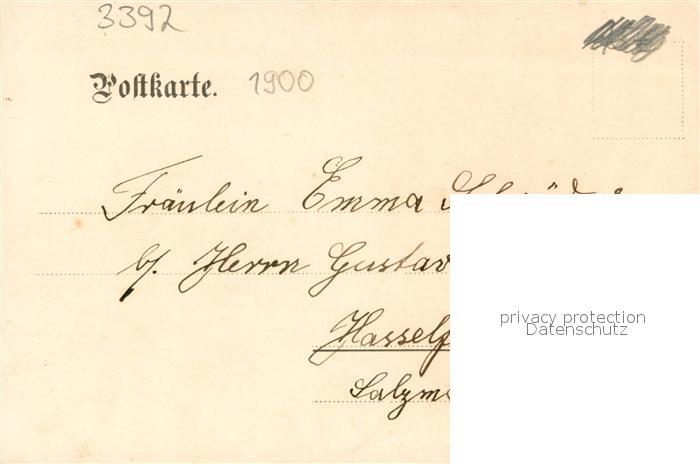 3392
Postkarte. 1900
Fräulein Emma
b/. Herrn Gustav
privacy protection
Datenschutz